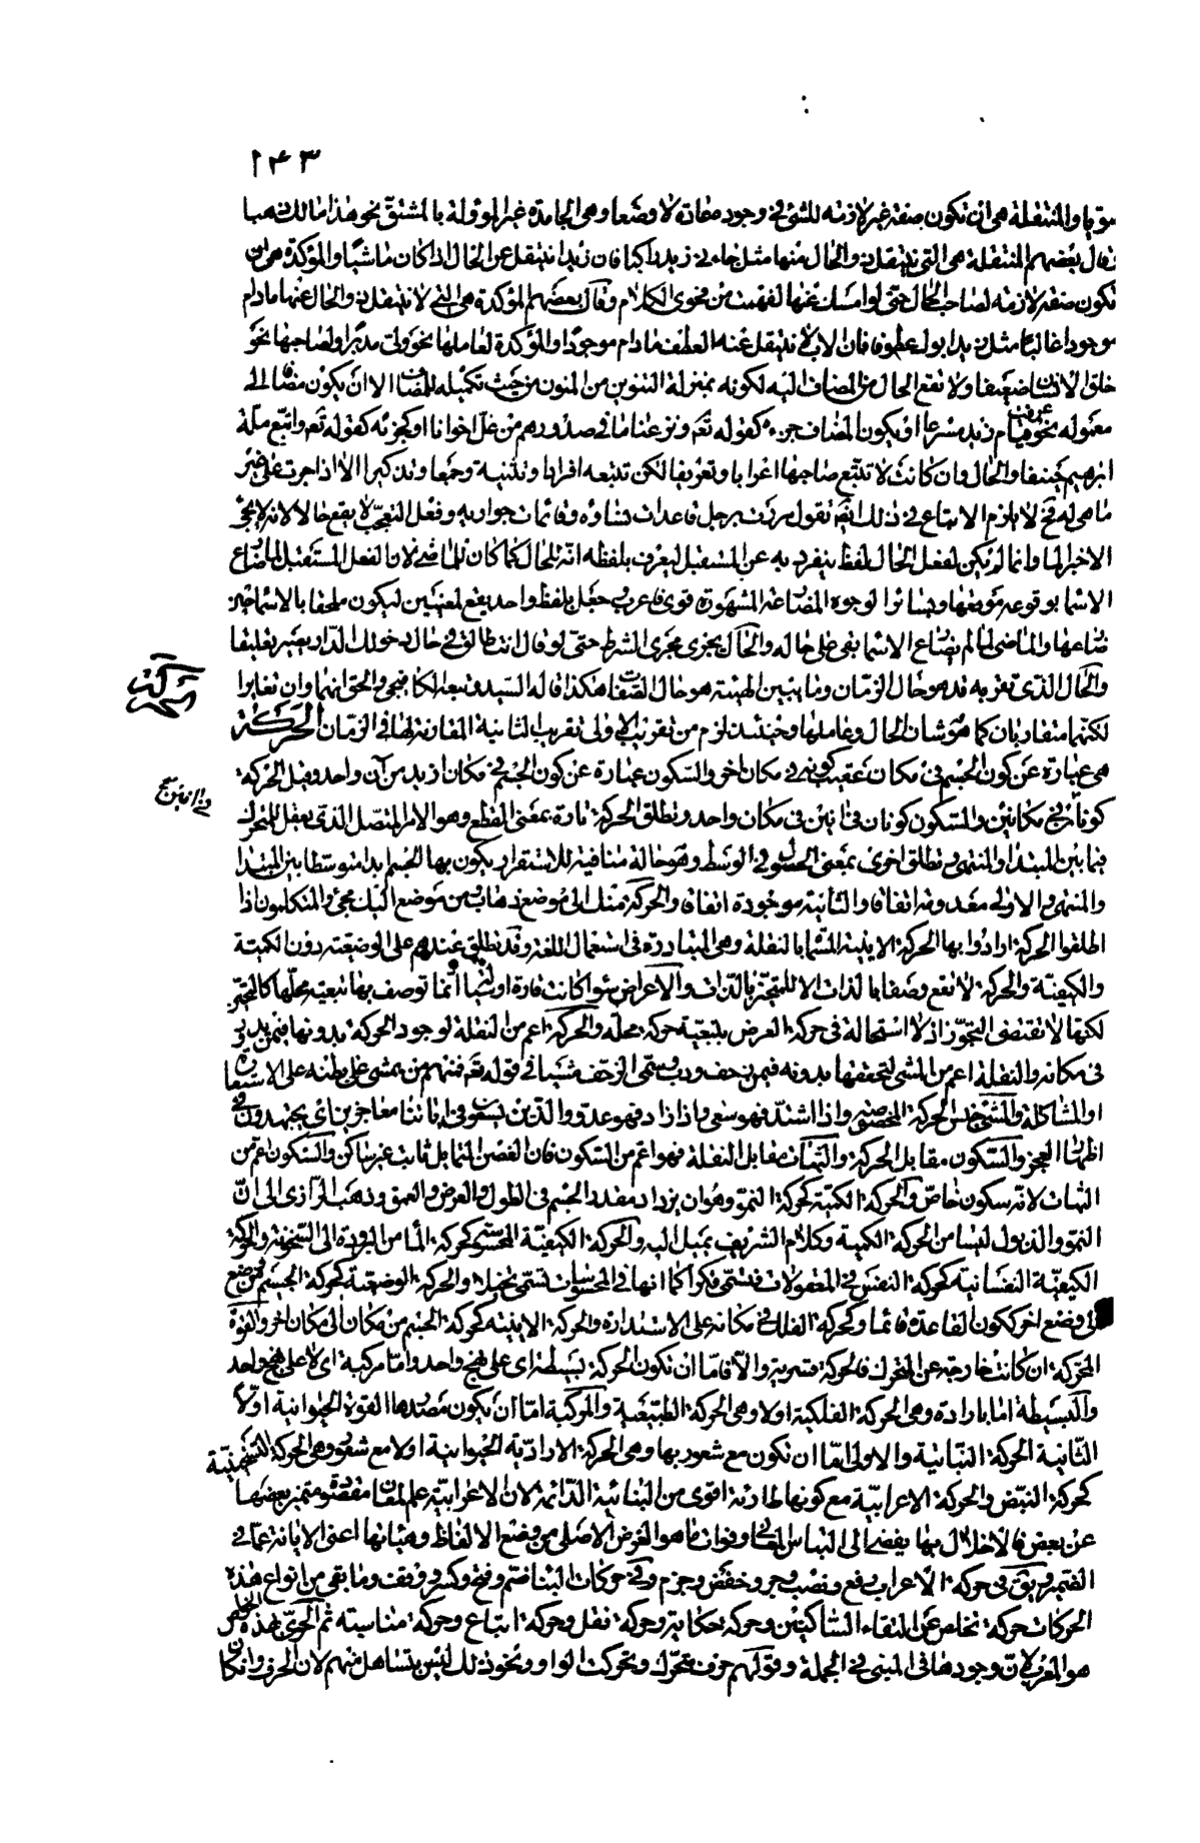 ١٤٣
سويا والمنتقلة هى ان تكون صفة غير لازمة للشئ فى وجوده عادة لا وضعا وهى الجامدة غير المؤولة بالمشتق نحو هذا مالك ذهبا
قال بعضهم المنتقلة هى التى ينتقل ذو الحال منها مثل جاءنى زيد راكبا فان زيدا ينتقل عن الحال اذا كان ماشيا والمؤكدة هى ان
تكون صفة لازمة لصاحب الحال حتى لو امسك عنها لفهمت من فحوى الكلام وقال بعضهم المؤكدة هى التى لا ينتقل ذو الحال عنها مادام
موجودا غالبا مثل زيد ابوك عطوفا فان الاب لا ينتقل عنه العطف مادام موجودا والمؤكدة لعاملها نحو ولى مدبرا ولصاحبها نحو
خلق الانسان ضعيفا ولا تقع الحال من المضاف اليه لكونه بمنزلة التنوين من المنون من حيث تكميله للمضاف الا ان يكون مضافا الى
معموله نحو عرفت قيام زيد مسرعا او يكون المضاف جزءه كقوله تعم ونزعنا ما فى صدورهم من غل اخوانا او كجزئه كقوله تعم واتبع ملة
ابرهيم حنيفا والحال وان كانت لا تتبع صاحبها اعرابا وتعريفا لكن تتبعه افرادا وتثنية وجمعا وتذكيرا الا اذا جرت على غير
ما هى له فح لا يلزم الاتباع فى ذلك ايضا تقول مررت برجل قاعدات نساؤه وقائمات جواريه وفعل التعجب لا يقع حالا لانه لا يجئ
الا خبرا لما وانما لم يكن لفعل الحال لفظ ينفرد به عن المستقبل ليعرف بلفظه انه للحال كما كان للماضى لان الفعل المستقبل لما ضارع
الاسماء بوقوعه موقعها وبسائر الوجوه المضارعة المشهورة قوى فاعرب جعل بلفظ واحد يقع لمعنيين ليكون ملحقا بالاسماء حين
ضارعها والماضى لما لم يضارع الاسماء بقى على حاله والحال يجرى مجرى الشرط حتى لو قال انت طالق فى حال دخولك الدار يصير تعليقا
والحال الذى تعربه قد هو حال الزمان وما يبين الهيئة هو حال الصفات هكذا قاله السيد وتبعه الكافيجى والحق انهما وان تغايرا
لكنهما متقاربان كما هو شان الحال وعاملها وحينئذ لزم من تقريب الاولى تقريب الثانية المقارنة لها فى الزمان الحركة
هى عبارة عن كون الجسم فى مكان عقيب كونه فى مكان اخر والسكون عبارة عن كون الجسم فى مكان ازيد من آن واحد وقيل الحركة
كونان فى مكانين والسكون كونان فى آنين فى مكان واحد وتطلق الحركة تارة بمعنى القطع وهو الامر المتصل الذى يعقل للمتحرك
فيما بين المبتدا والمنتهى وتطلق اخرى بمعنى الحصول فى الوسط وهو حالة منافية للاستقرار يكون بها الجسم ابدا متوسطا بين المبتدا
والمنتهى والاولى معدومة اتفاقا والثانية موجودة اتفاقا والحركة منك الى موضع ذهاب ومن موضع اليك مجئ والمتكلمون اذا
اطلقوا الحركة ارادوا بها الحركة الاينية المسماة بالنقلة وهى المتبادرة فى استعمال اللغة وقد تطلق عندهم على الوضعية دون الكمية
والكيفية والحركة لا تقع وصفا بالذات الا للمتحيز بالذات والاعراض سواء كانت قارة او سيالة انما توصف بها تبعية محلها كالتحيز
لكنها لا تقتضى التجوز اذ لا استحالة فى حركة العرض بتبعية حركة محله والحركة اعم من النقلة لوجود الحركة بدونها فيمن يدور
فى مكانه والنقلة اعم من المشى لتحققها بدونه فيمن زحف ودب وسمى الزحف مشيا فى قوله تعم فمنهم من يمشى على بطنه على الاستعارة
او المشاكلة والمشى جنس الحركة المخصوصة واذا اشتد فهو سعى واذا زاد فهو عدو والذين يسعون فى اياتنا معاجزين اى يجتهدون فى
اظهار العجز والسكون مقابل الحركة والثبات مقابل النقلة فهو اعم من السكون فان الغصن المتمايل ثابت غير ساكن والسكون اعم من
الثبات لانه سكون خاص والحركة الكمية كحركة النمو وهو ان يزداد مقدار الجسم فى الطول والعرض والعمق وذهب الرازى الى ان
النمو والذبول ليسا من الحركة الكمية وكلام الشريف يميل اليه والحركة الكيفية المحسوسة كحركة الماء من البرودة الى السخونة والحركة
الكيفية النفسانية كحركة النفس فى المعقولات وتسمى فكرا كما انها فى المحسوسات تسمى تخيلا والحركة الوضعية كحركة الجسم من وضع
الى وضع اخر ككون القاعدة قائما وكحركة الفلك فى مكانه على الاستدارة والحركة الاينية كحركة الجسم من مكان الى مكان اخر والقوة
المحركة ان كانت خارجة عن المتحرك فالحركة قسرية والا فاما ان تكون الحركة بسيطة اى على نهج واحد واما مركبة اى لا على نهج واحد
والبسيطة اما بارادة وهى الحركة الفلكية اولا وهى الحركة الطبيعية والمركبة اما ان يكون مصدرها القوة الحيوانية اولا
الثانية الحركة النباتية والاولى اما ان تكون مع شعور بها وهى الحركة الارادية الحيوانية اولا مع شعور وهى الحركة التسخيرية
كحركة النبض والحركة الاعرابية مع كونها طارئة اقوى من البنائية الدائمة لان الاعرابية علم لمعان مقصودة متميز بعضها
عن بعض فالاخلال بها يفضى الى التباس المعانى وفوات ما هو الغرض الاصلى من وضع الالفاظ وهيئاتها اعنى الابانة عما فى
الضمير ويق فى حركة الاعراب رفع ونصب وجر وخفض وجزم وفى حركات البناء ضم وفتح وكسر ووقف وما بقى من انواع هذه
الحركات حركة تخلص عن التقاء الساكنين وحركة حكاية وحركة نقل وحركة اتباع وحركة مناسبة ثم الحرى بهذه الخلص
هو المعرب لان وجودها فى المبنى فى الجملة وقولهم حرف متحرك وتحركت الواو ونحو ذلك ليس بتساهل منهم لان الحرف وان كان
الحركة
فى آنين صح